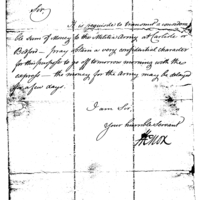 Sir,
It is requisite to transmit a considera
ble sum of Money to the Militia Army at Carlisle
Bedford — pray obtain a very confidential character
for this purpose to go off tomorrow morning with the
express — the money for the Army may be delayed
for a few days.
I am Sir,
Your humble Servant